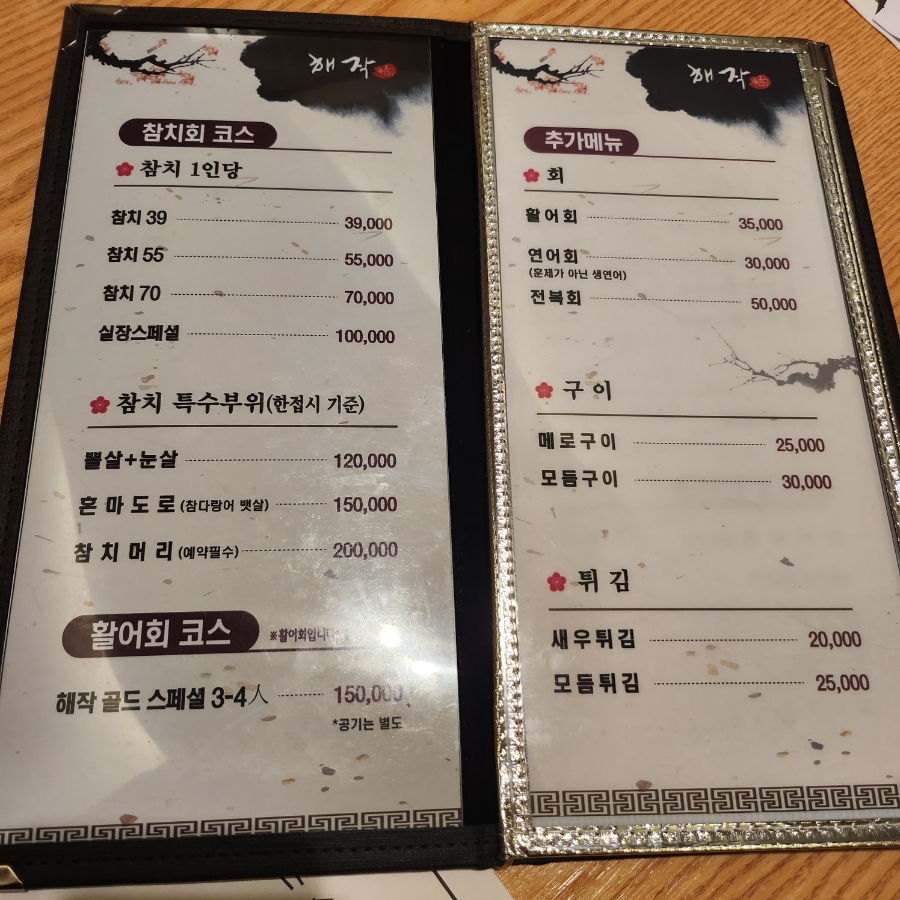 해작
참치회 코스
참치 1인당
참치 39 39,000
참치 55 55,000
참치 70 70,000
실장스페셜 100,000
참치 특수부위(한접시 기준)
뽈살+눈살 120,000
혼마도로 (참다랑어 뱃살) 150,000
참치머리 (예약필수) 200,000
활어회 코스 ※활어회입니다
해작 골드 스페셜 3-4人 150,000
*공기는 별도
해작
추가메뉴
회
활어회 35,000
연어회 30,000
(훈제가 아닌 생연어)
전복회 50,000
구이
메로구이 25,000
모듬구이 30,000
튀김
새우튀김 20,000
모듬튀김 25,000